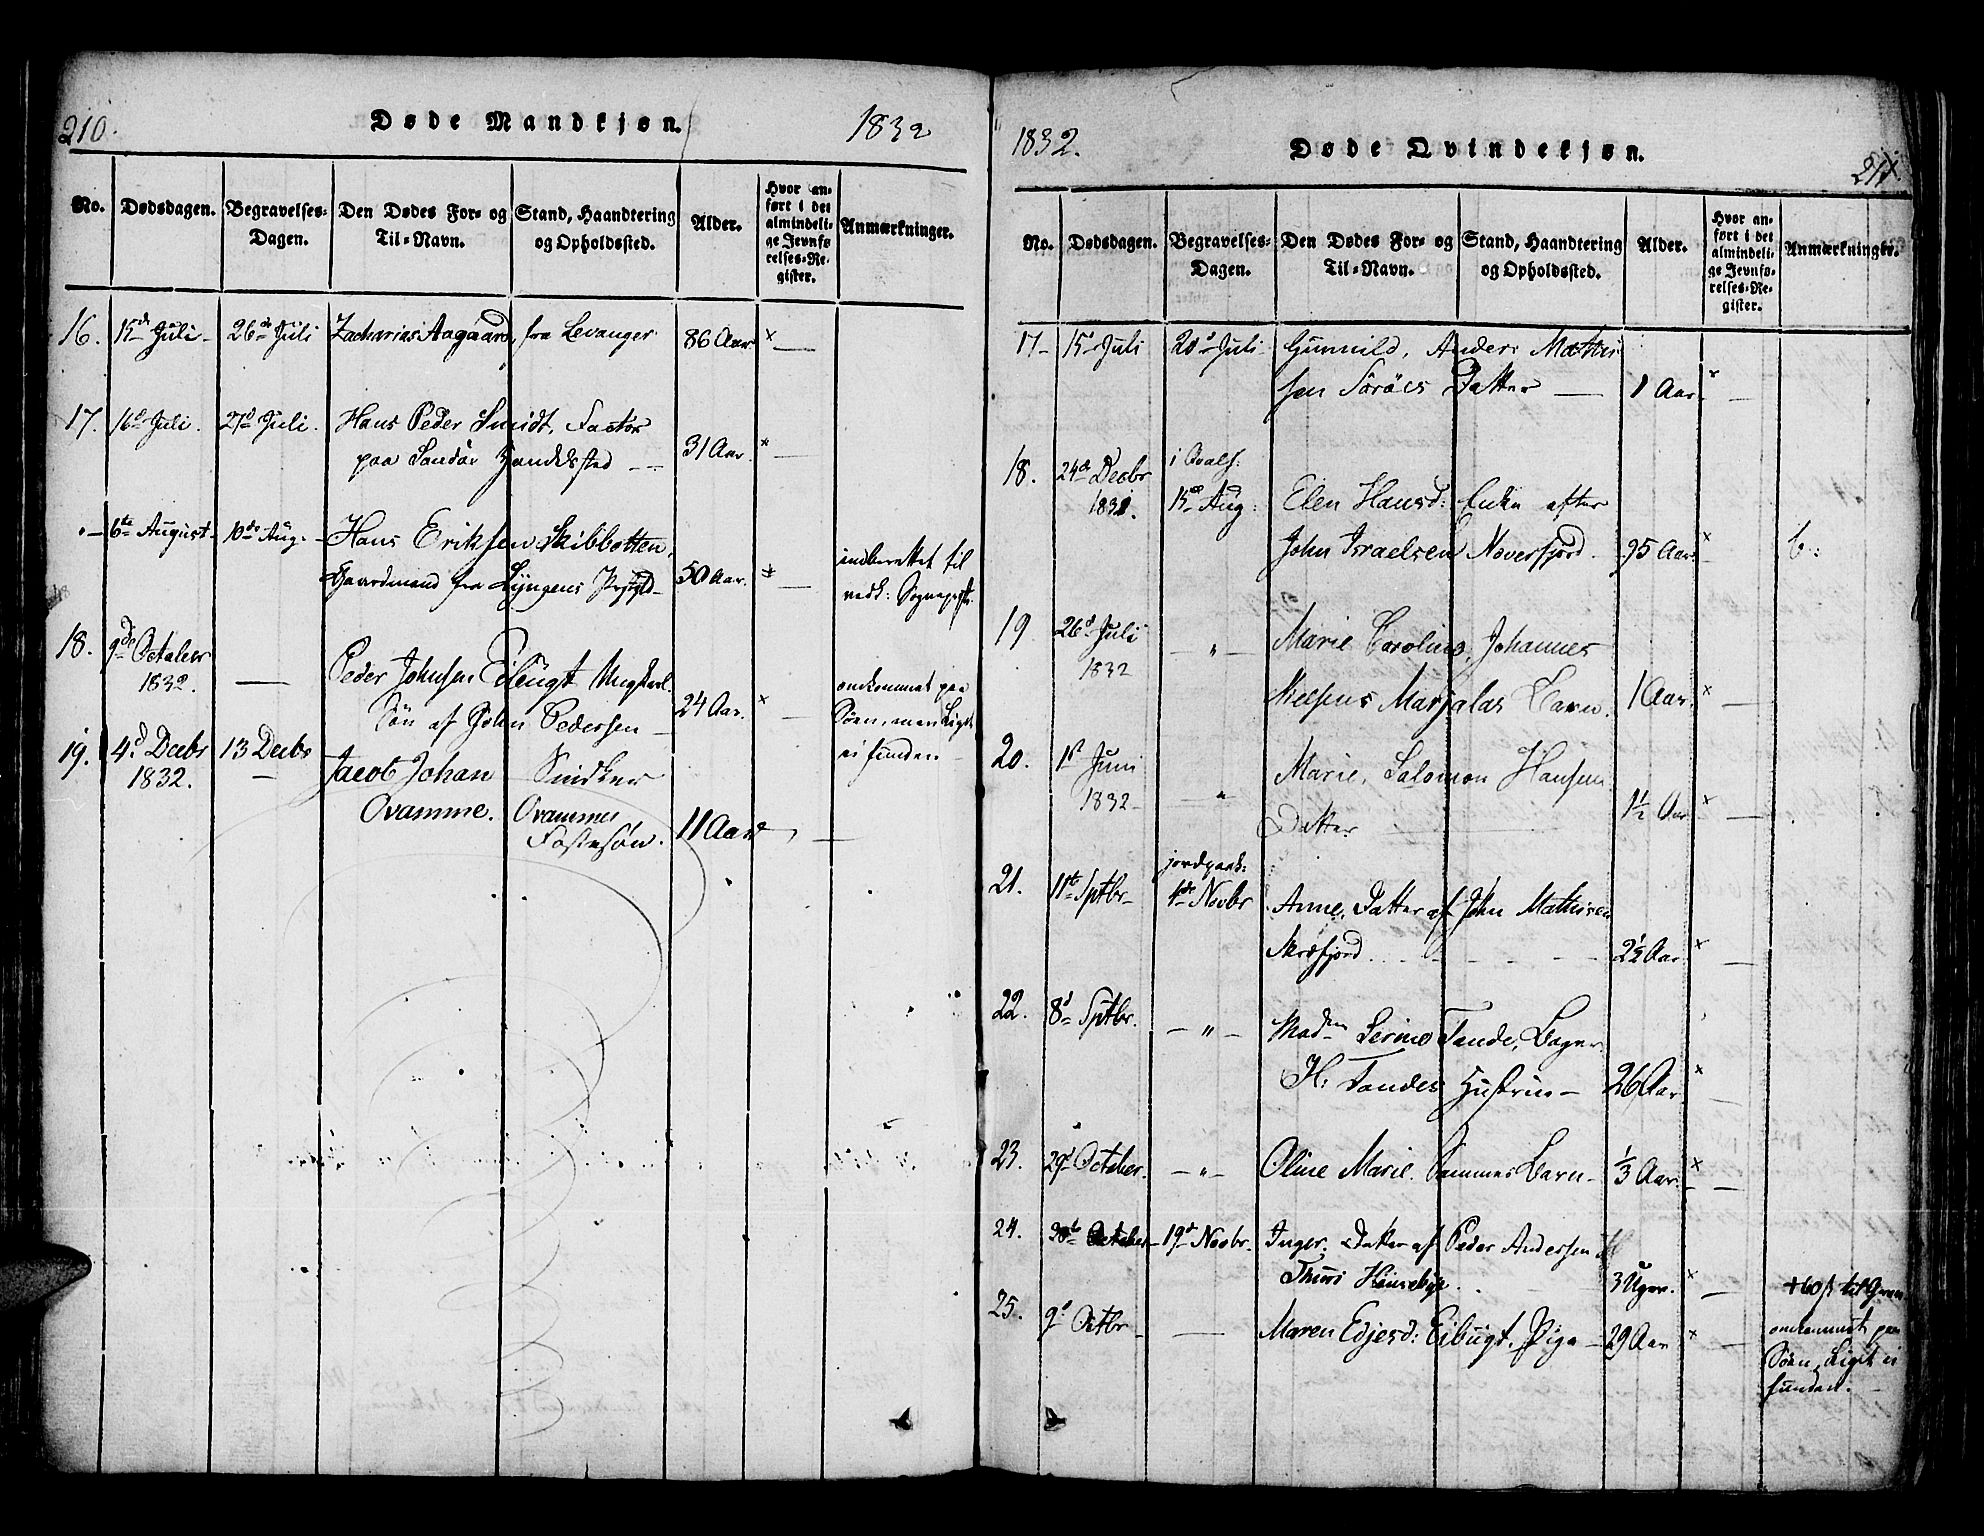 210.
Døde Mandkjøn.
1832
No.
Dødsdagen.
Begravelses-Dagen.
Den Dødes For- og Til-Navn.
Stand, Haandtering og Opholdssted.
Alder.
Hvor anført i det almindelige Jevnførelses-Register.
Anmærkninger.
16. 15d Juli - 26de Juli Zacharias Aagaard, fra Levanger 86 Aar × —
17. 16d Juli. 27d Juli. Hans Peder Smidt, Factor
paa Handelsted — 31 Aar. × —
" — 6te August - 10de Aug. - Hans Eriksen Skibbotten,
Gaardmand fra Lyngens 50 Aar. × —
indberettet til
vedk:
18. 9de October
1832. —
Peder Johnsen Eibugt
Søn af John Pedersen — 24 Aar. × —
omkommet paa
Søen, men Liget
ei funden —
19. 4d Decbr 13 Decbr
1832. —
Jacob Johan Snidker
Qvamme. Qvammes
Fostersøn. 11 Aar —
1832.
Døde Qvindekjøn.
211.
No.
Dødsdagen.
Begravelses-Dagen.
Den Dødes For- og Til-Navn.
Stand, Haandtering og Opholdssted.
Alder.
Hvor anført i det almindelige Jevnførelses-Register.
Anmærkninger.
17 - 15 Juli 20d Juli Gunnild, Anders Mathi
sen Sørøes Datter — 1 Aar. × —
18. 24de Decbr
1831.
15de Aug:
Elen Hansd: Enke efter
John Israelsen Noverfjord. 95 Aar × b:
19. 26d Juli
1832 — " —
Marie Caroline, Johannes
Nielsens Marjalas Barn. 1 Aar × —
20. 1st Juni
1832 - — "
Marie, Salomon Hansens
Datter 1½ Aar × —
21. 11te Sptbr - jordpaak:
4de Novbr
Anne, Datter af John Mathisen
2½ Aar × —
22. 8d Sptbr. — " — Madm Serine Tande, Bager
H: Tandes Hustrue — 26 Aar × —
23. 29d October. — " — Oline Marie. Sammes Barn — 1/3 Aar. × —
24. October - 19d Novbr. Inger, Datter af Peder Andersen
3 Uger. × —
25. 9d Octbr — — Maren Edjesd: Eibugt, Pige — 29 Aar × —
omkommet paa
Søen, Liget ei
funden. —